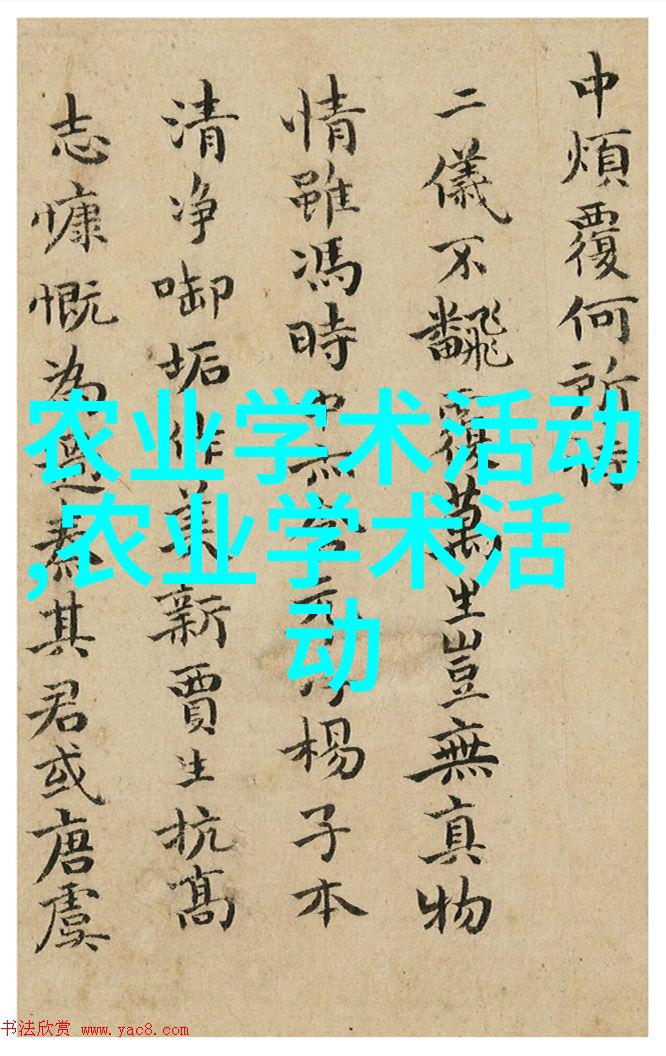 中煩覆何所
二儀不飜覆萬生豈無真物
情雖馮時中楊子本
清净啣垢作美新賈生抗髙
志慷慨為其君或唐虞
农业学术活动
,农业学术活
动
书法欣赏 www.yac8.com